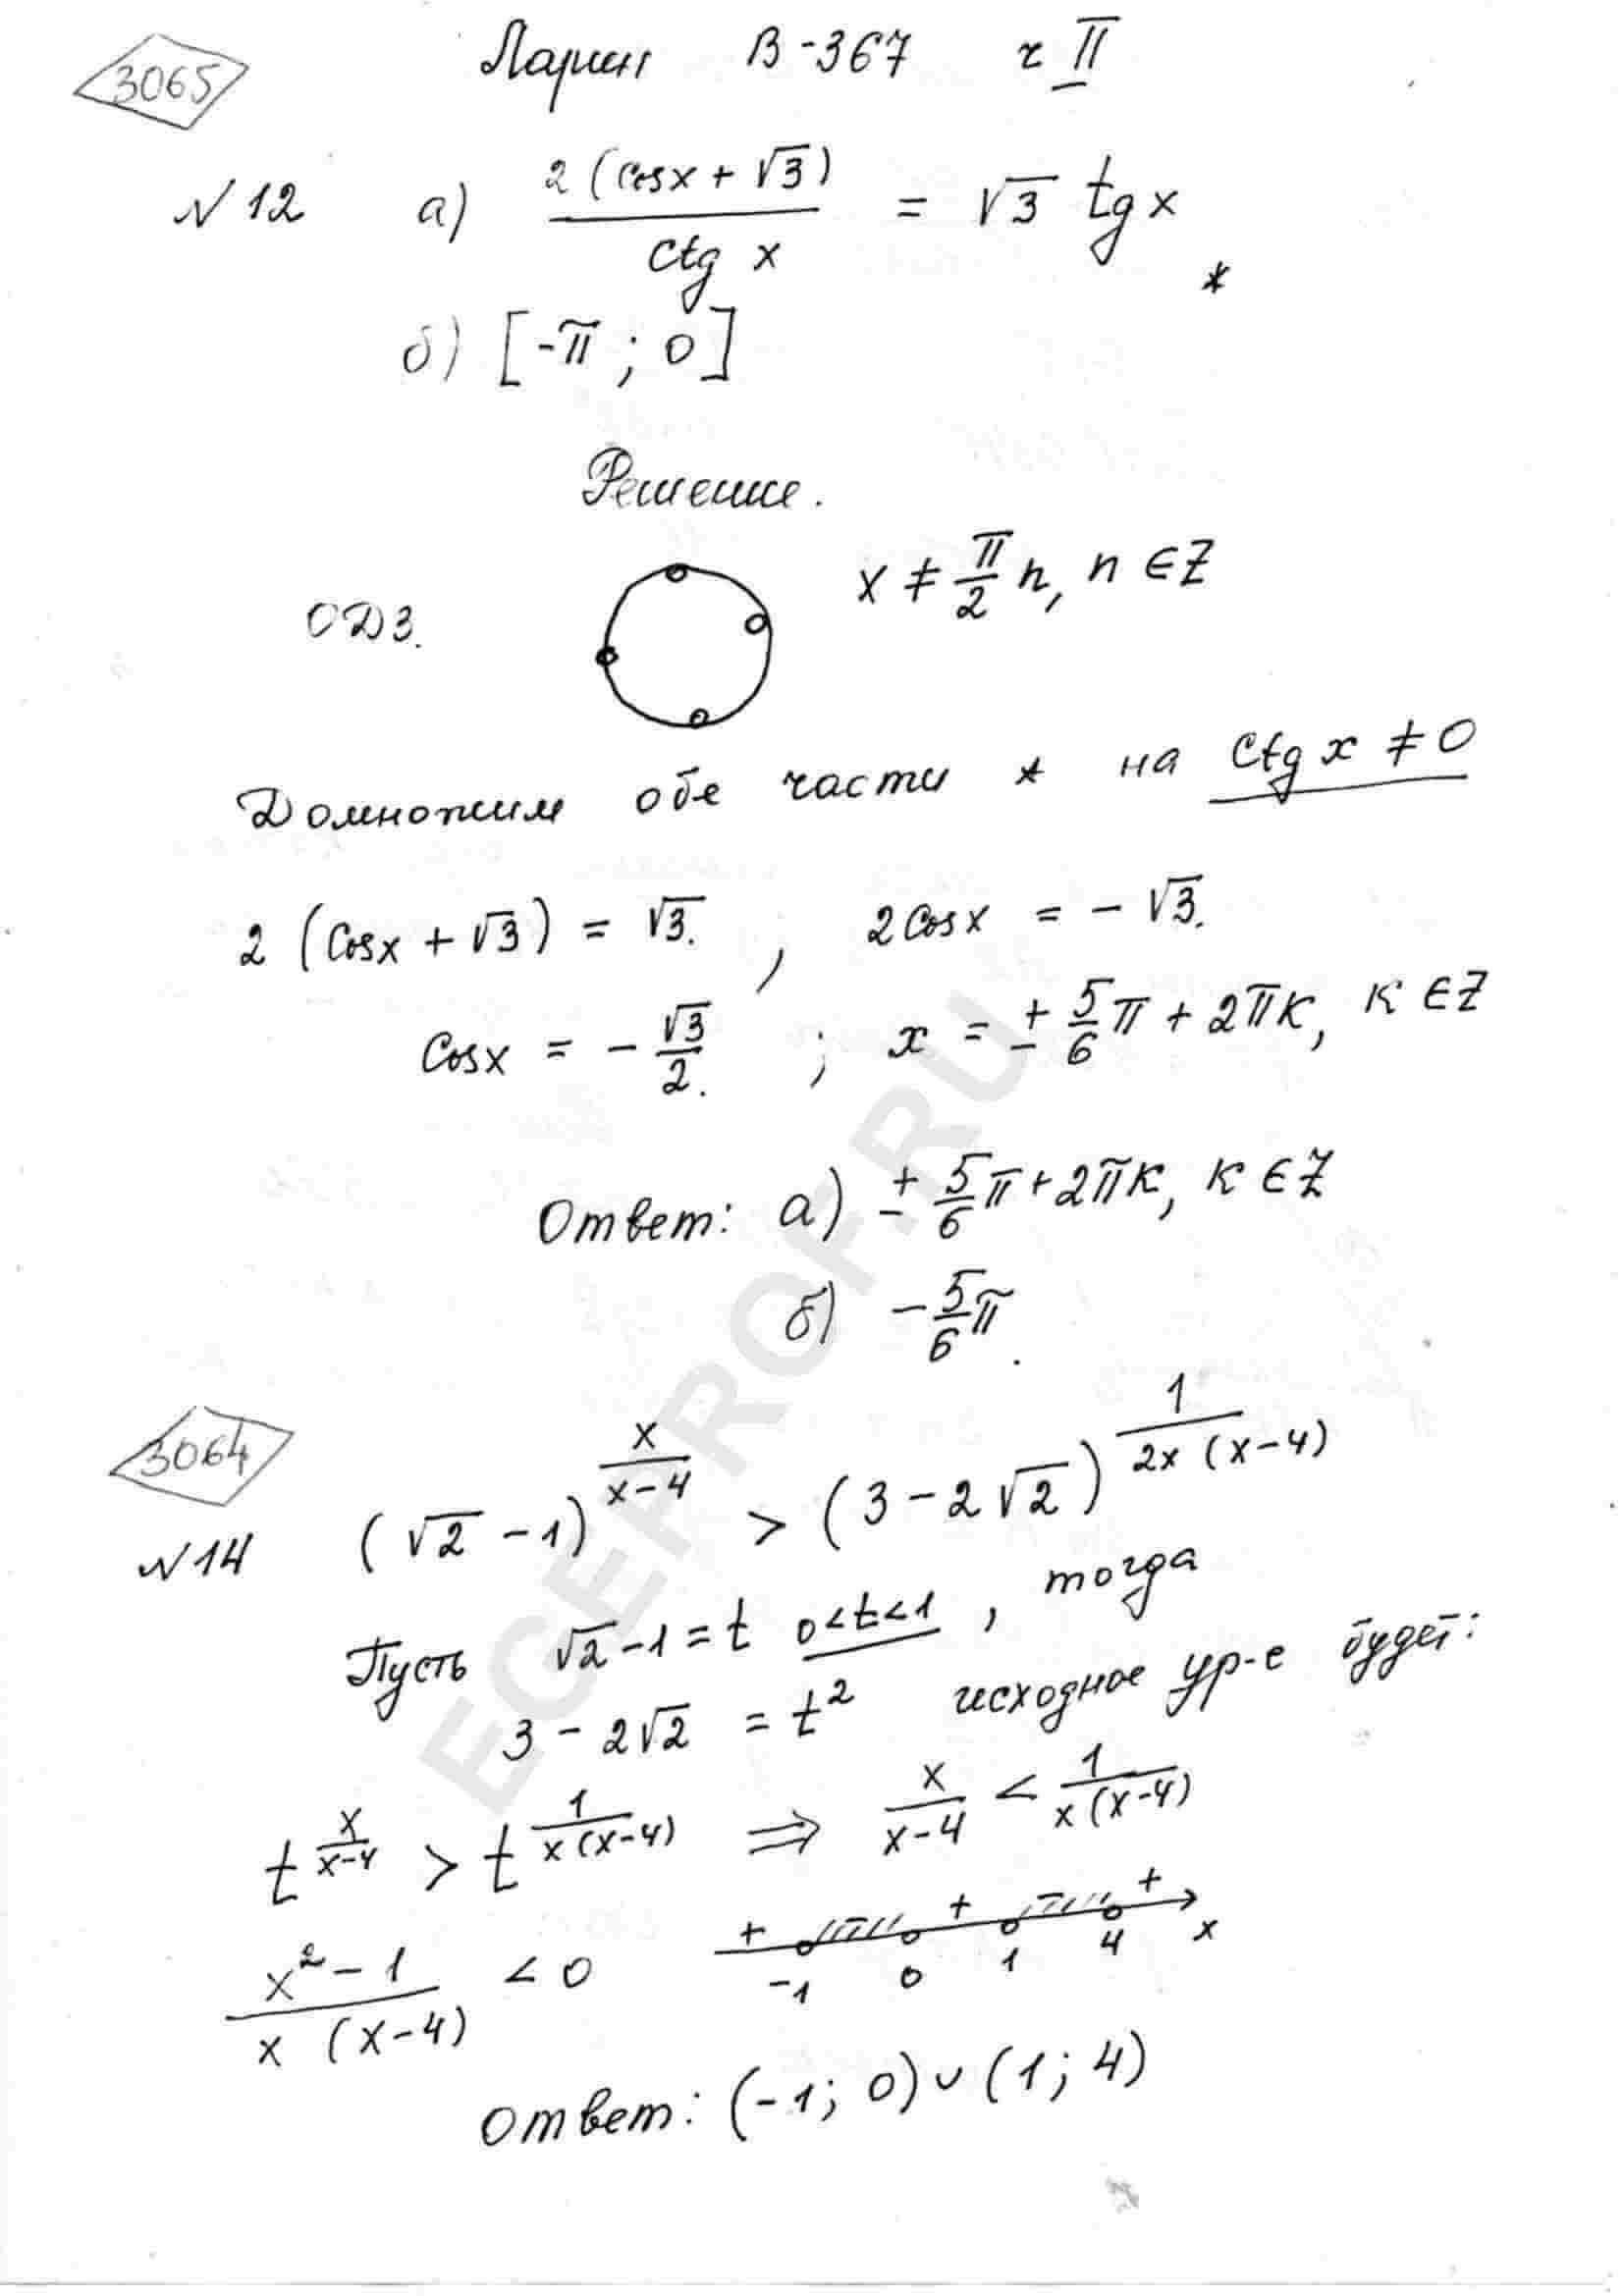 3065
Ларин В-367 ч II
N12 а) 2(cosx + √3) / ctg x = √3 tg x *
б) [-π ; 0]
Решение.
ОДЗ. x ≠ π/2 n, n ∈ Z
Домножим обе части * на ctg x ≠ 0
2 (cosx + √3) = √3. , 2cosx = - √3.
cosx = - √3/2. ; x = ± 5/6 π + 2πк, к ∈ Z
Ответ: а) ± 5/6 π + 2πк, к ∈ Z
б) - 5/6 π.
3064
N14 (√2 - 1)^(x/(x-4)) > (3 - 2√2)^(1/(2x(x-4)))
Пусть √2 - 1 = t 0<t<1 , тогда
3 - 2√2 = t² исходное ур-е будет:
t^(x/(x-4)) > t^(1/(x(x-4))) ⇒ x/(x-4) < 1/(x(x-4))
+ − + − +
(x² - 1)/(x (x-4)) < 0 -1 0 1 4 x
Ответ: (-1; 0) ∪ (1; 4)
EGEPROF.RU